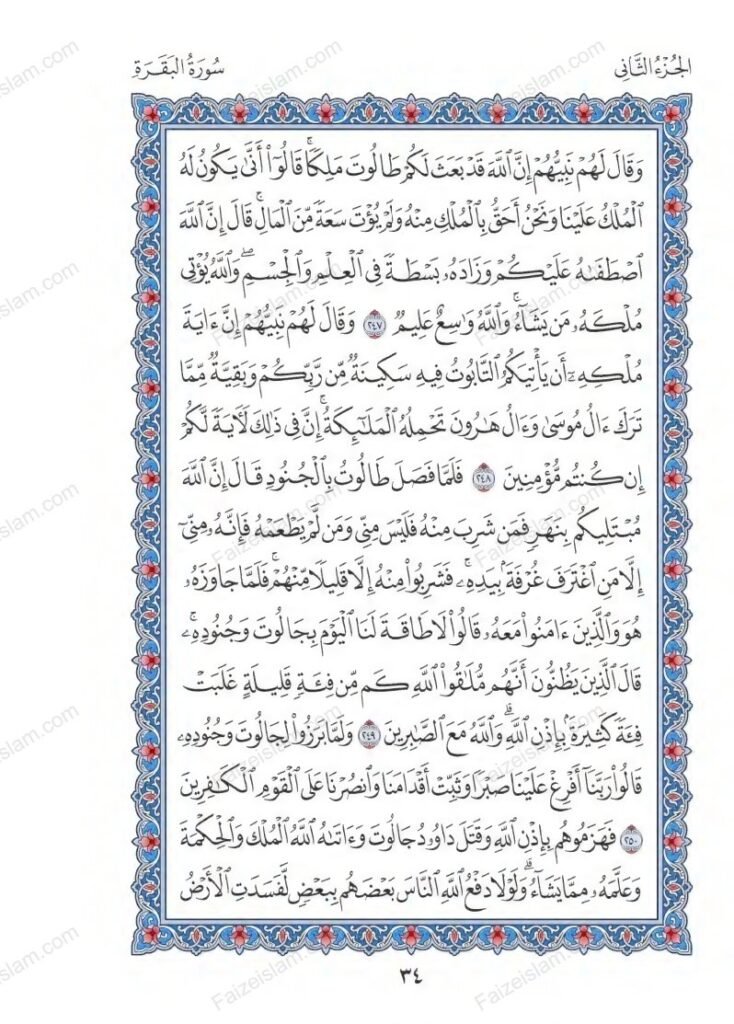 الجُزْءُ الثَّانِي
سُورَةُ البَقَرَةِ
وَقَالَ لَهُمْ نَبِيُّهُمْ إِنَّ ٱللَّهَ قَدْ بَعَثَ لَكُمْ طَالُوتَ مَلِكًاۚ قَالُوٓاْ أَنَّىٰ يَكُونُ لَهُ
ٱلْمُلْكُ عَلَيْنَا وَنَحْنُ أَحَقُّ بِٱلْمُلْكِ مِنْهُ وَلَمْ يُؤْتَ سَعَةً مِّنَ ٱلْمَالِۚ قَالَ إِنَّ ٱللَّهَ
ٱصْطَفَىٰهُ عَلَيْكُمْ وَزَادَهُۥ بَسْطَةً فِي ٱلْعِلْمِ وَٱلْجِسْمِۖ وَٱللَّهُ يُؤْتِي
مُلْكَهُۥ مَن يَشَآءُۚ وَٱللَّهُ وَٰسِعٌ عَلِيمٌ ٢٤٧ وَقَالَ لَهُمْ نَبِيُّهُمْ إِنَّ ءَايَةَ
مُلْكِهِۦٓ أَن يَأْتِيَكُمُ ٱلتَّابُوتُ فِيهِ سَكِينَةٌ مِّن رَّبِّكُمْ وَبَقِيَّةٌ مِّمَّا
تَرَكَ ءَالُ مُوسَىٰ وَءَالُ هَٰرُونَ تَحْمِلُهُ ٱلْمَلَٰٓئِكَةُۚ إِنَّ فِي ذَٰلِكَ لَأٓيَةً لَّكُمْ
إِن كُنتُم مُّؤْمِنِينَ ٢٤٨ فَلَمَّا فَصَلَ طَالُوتُ بِٱلْجُنُودِ قَالَ إِنَّ ٱللَّهَ
مُبْتَلِيكُم بِنَهَرٍ فَمَن شَرِبَ مِنْهُ فَلَيْسَ مِنِّي وَمَن لَّمْ يَطْعَمْهُ فَإِنَّهُۥ مِنِّيٓ
إِلَّا مَنِ ٱغْتَرَفَ غُرْفَةًۢ بِيَدِهِۦۚ فَشَرِبُواْ مِنْهُ إِلَّا قَلِيلًا مِّنْهُمْۚ فَلَمَّا جَاوَزَهُۥ
هُوَ وَٱلَّذِينَ ءَامَنُواْ مَعَهُۥ قَالُواْ لَا طَاقَةَ لَنَا ٱلْيَوْمَ بِجَالُوتَ وَجُنُودِهِۦۚ
قَالَ ٱلَّذِينَ يَظُنُّونَ أَنَّهُم مُّلَٰقُواْ ٱللَّهِ كَم مِّن فِئَةٍ قَلِيلَةٍ غَلَبَتْ
فِئَةً كَثِيرَةًۢ بِإِذْنِ ٱللَّهِۗ وَٱللَّهُ مَعَ ٱلصَّٰبِرِينَ ٢٤٩ وَلَمَّا بَرَزُواْ لِجَالُوتَ وَجُنُودِهِۦ
قَالُواْ رَبَّنَآ أَفْرِغْ عَلَيْنَا صَبْرًا وَثَبِّتْ أَقْدَامَنَا وَٱنصُرْنَا عَلَى ٱلْقَوْمِ ٱلْكَٰفِرِينَ
٢٥٠ فَهَزَمُوهُم بِإِذْنِ ٱللَّهِ وَقَتَلَ دَاوُۥدُ جَالُوتَ وَءَاتَىٰهُ ٱللَّهُ ٱلْمُلْكَ وَٱلْحِكْمَةَ
وَعَلَّمَهُۥ مِمَّا يَشَآءُۗ وَلَوْلَا دَفْعُ ٱللَّهِ ٱلنَّاسَ بَعْضَهُم بِبَعْضٍ لَّفَسَدَتِ ٱلْأَرْضُ
٣٤
Faizeislam.com